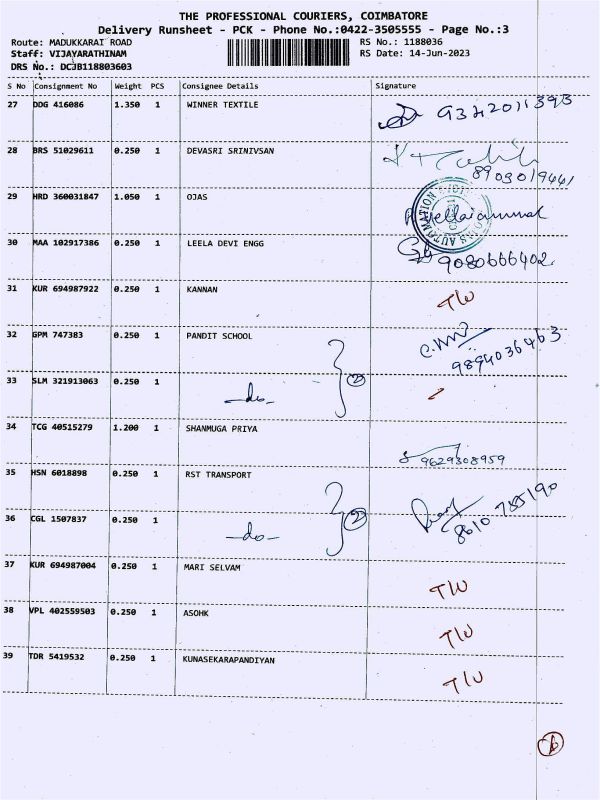 THE PROFESSIONAL COURIERS, COIMBATORE
Delivery Runsheet - PCK - Phone No.:0422-3505555 - Page No.:3
Route: MADUKKARAI ROAD RS No.: 1188036
Staff: VIJAYARATHINAM RS Date: 14-Jun-2023
DRS No.: DCJB118803603
S No Consignment No Weight PCS Consignee Details Signature
27 DDG 416086 1.350 1 WINNER TEXTILE 9342011393
28 BRS 51029611 0.250 1 DEVASRI SRINIVSAN
8903019441
29 HRD 360031847 1.050 1 OJAS
AUTOMATION
30 MAA 102917386 0.250 1 LEELA DEVI ENGG
9080666402
31 KUR 694987922 0.250 1 KANNAN T/U
32 GPM 747383 0.250 1 PANDIT SCHOOL
9894036463
33 SLM 321913063 0.250 1 -do- 2
34 TCG 40515279 1.200 1 SHANMUGA PRIYA
9629308959
35 HSN 6018898 0.250 1 RST TRANSPORT
8610 785190
36 CGL 1507837 0.250 1 -do- 2
37 KUR 694987004 0.250 1 MARI SELVAM T/U
38 VPL 402559503 0.250 1 ASOHK T/U
39 TDR 5419532 0.250 1 KUNASEKARAPANDIYAN T/U